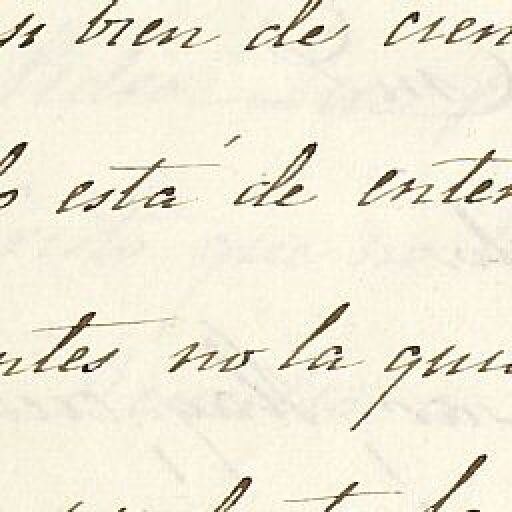 si bien de cien
está de enten
ntes no la qui